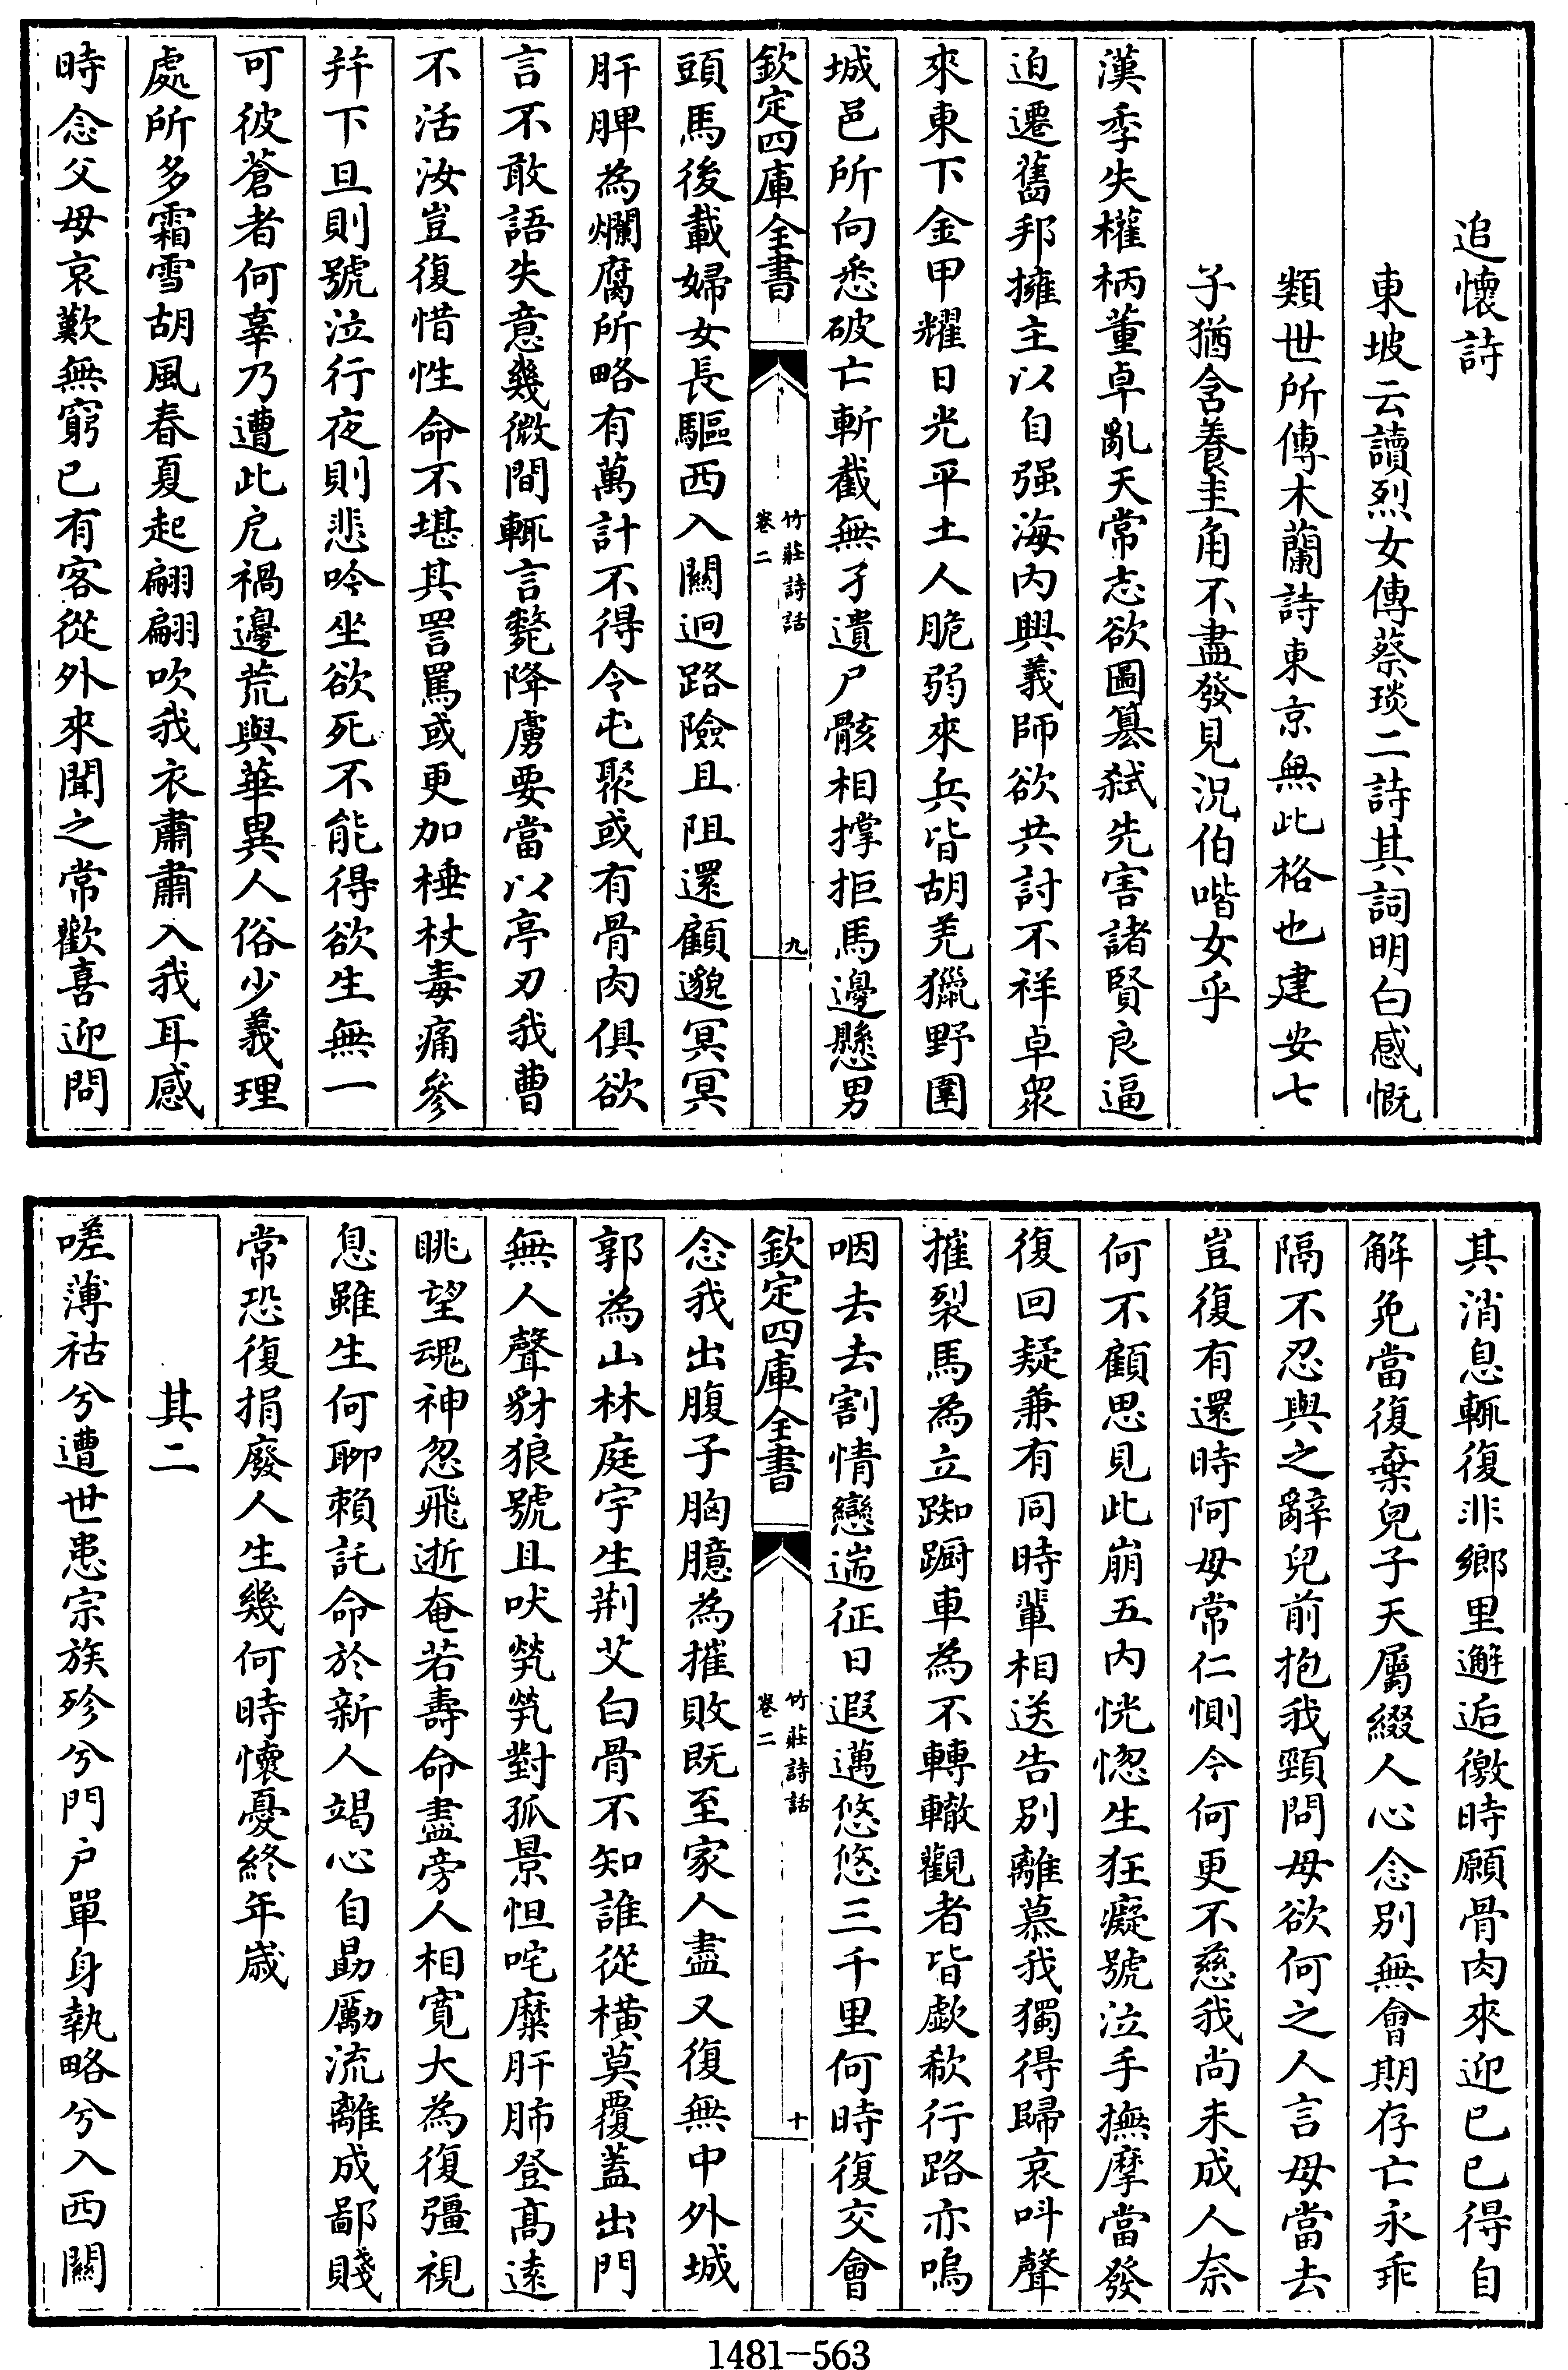 追懷詩
東坡云讀烈女傳蔡琰二詩其詞明白感慨
類世所傳木蘭詩東京無此格也建安七
子猶含養圭角不盡發見況伯喈女乎
漢季失權柄董卓亂天常志欲圖篡弑先害諸賢良逼
迫遷舊邦擁主以自强海内興義師欲共討不祥卓衆
來東下金甲耀日光平土人脆弱來兵皆胡羌獵野圍
城邑所向悉破亡斬截無孑遺尸骸相撑拒馬邊懸男
欽定四庫全書
竹莊詩話
卷二
九
頭馬後載婦女長驅西入關迥路險且阻還顧邈冥冥
肝脾為爛腐所略有萬計不得令屯聚或有骨肉俱欲
言不敢語失意幾微間輒言斃降虜要當以亭刃我曹
不活汝豈復惜性命不堪其詈罵或更加棰杖毒痛參
并下旦則號泣行夜則悲吟坐欲死不能得欲生無一
可彼蒼者何辜乃遭此戹禍邊荒與華異人俗少義理
處所多霜雪胡風春夏起翩翩吹我衣肅肅入我耳感
時念父母哀歎無窮已有客從外來聞之常歡喜迎問
其消息輒復非鄉里邂逅徼時願骨肉來迎已已得自
解免當復棄兒子天屬綴人心念別無會期存亡永乖
隔不忍與之辭兒前抱我頸問母欲何之人言母當去
豈復有還時阿母常仁惻今何更不慈我尚未成人奈
何不顧思見此崩五内恍惚生狂癡號泣手撫摩當發
復回疑兼有同時輩相送告別離慕我獨得歸哀呌聲
摧裂馬為立踟蹰車為不轉轍觀者皆歔欷行路亦嗚
咽去去割情戀遄征日遐邁悠悠三千里何時復交會
欽定四庫全書
竹莊詩話
卷二
十
念我出腹子胸臆為摧敗既至家人盡又復無中外城
郭為山林庭宇生荆艾白骨不知誰從橫莫覆蓋出門
無人聲豺狼號且吠煢煢對孤景怛咤糜肝肺登高遠
眺望魂神忽飛逝奄若壽命盡旁人相寬大為復彊視
息雖生何聊賴託命於新人竭心自勗厲流離成鄙賤
常恐復捐廢人生幾何時懷憂終年歲
其二
嗟薄祜兮遭世患宗族殄兮門户單身執略兮入西關
1481-563